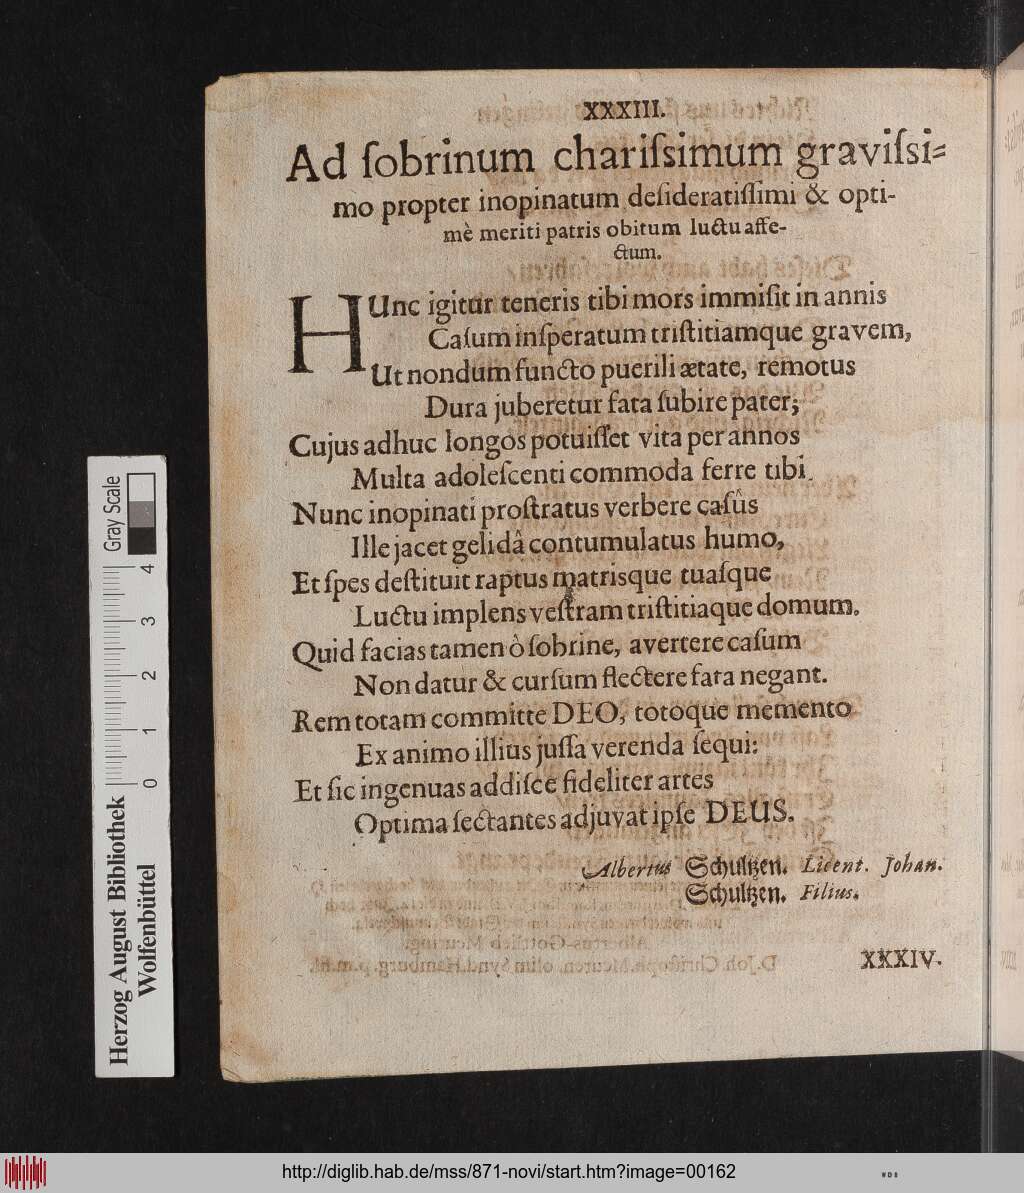 XXXIII.
Ad ſobrinum chariſsimum graviſsi⸗
mo propter inopinatum deſideratiſſimi & opti-
mè meriti patris obitum luctu affe-
ctum.
HUnc igitur teneris tibi mors immiſit in annis
Caſum inſperatum triſtitiamque gravem,
Ut nondum functo puerili ætate, remotus
Dura juberetur fata ſubire pater;
Cujus adhuc longos potuiſſet vita per annos
Multa adoleſcenti commoda ferre tibi.
Nunc inopinati proſtratus verbere caſûs
Ille jacet gelidâ contumulatus humo,
Et ſpes deſtituit raptus matrisque tuaſque
Luctu implens veſtram triſtitiaque domum.
Quid facias tamen ò ſobrine, avertere caſum
Non datur & curſum flectere fata negant.
Rem totam committe DEO, totoque memento
Ex animo illius juſſa verenda ſequi:
Et ſic ingenuas addiſce fideliter artes
Optima ſectantes adjuvat ipſe DEUS.
Albertus Schultzen. Licent. Johan.
Schultzen. Filius.
XXXIV.
Gray Scale
0 1 2 3 4
Herzog August Bibliothek
Wolfenbüttel
http://diglib.hab.de/mss/871-novi/start.htm?image=00162